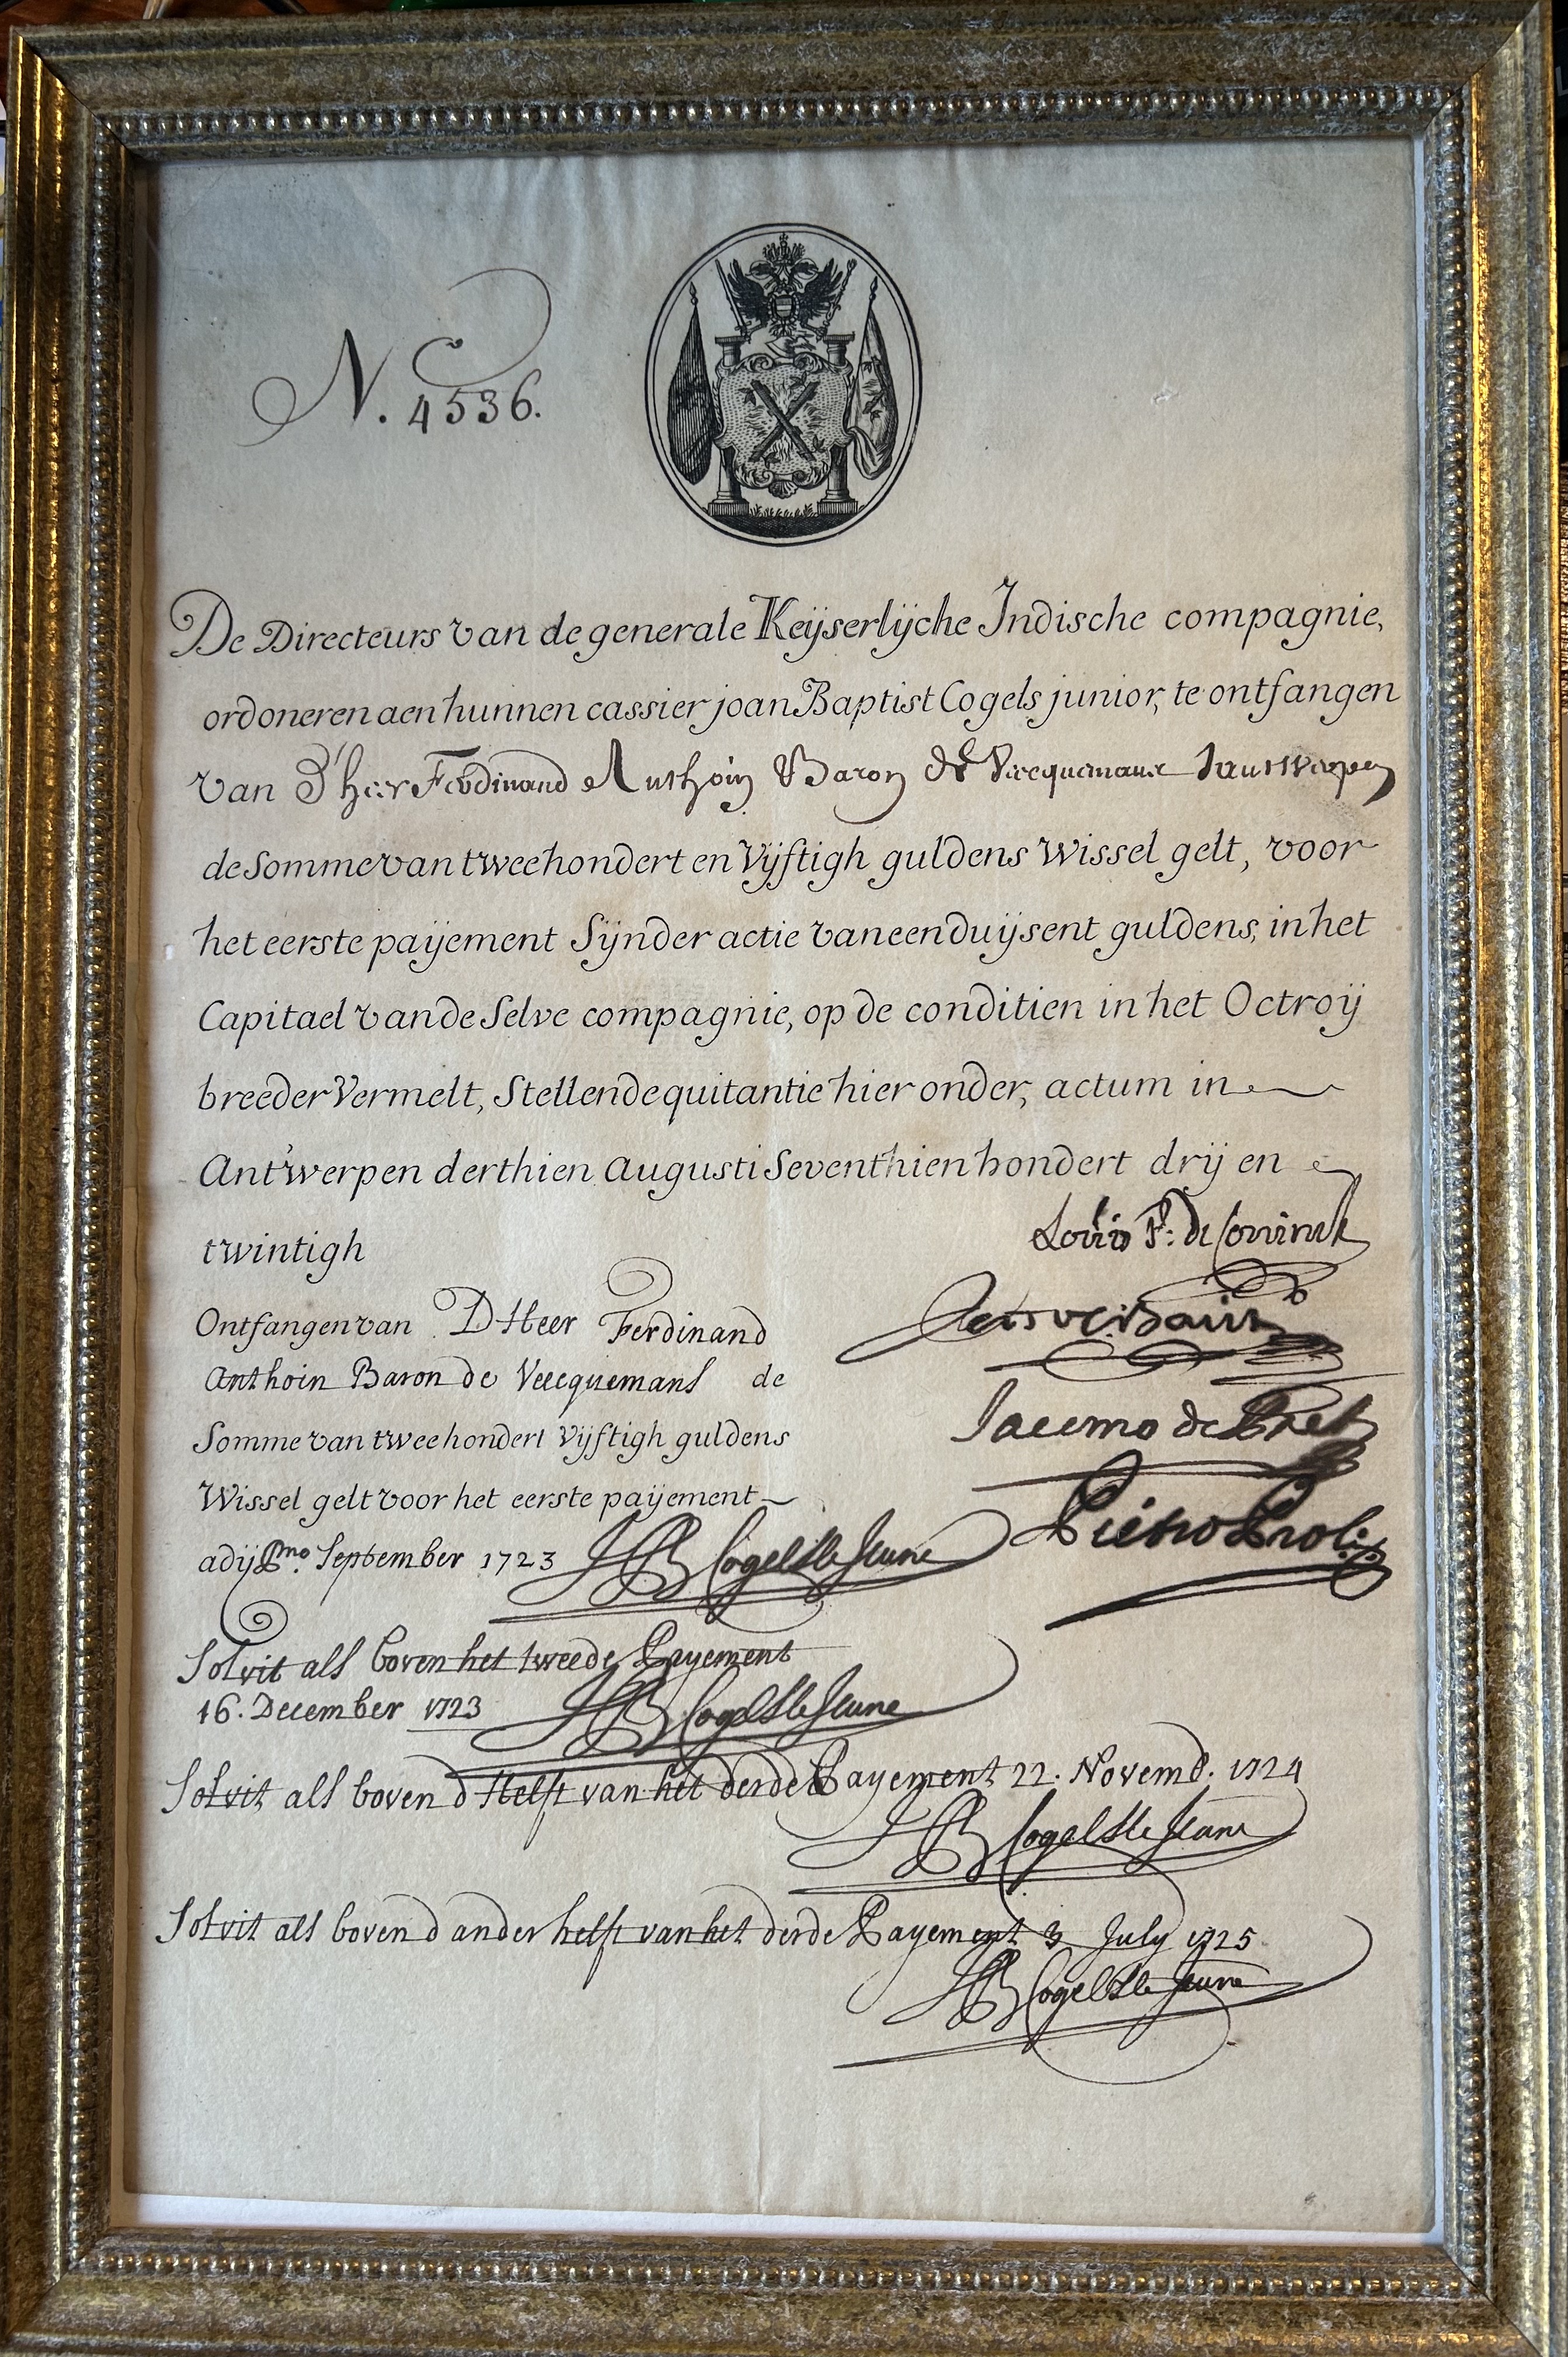 N. 4536.
De Directeurs van de generale Keÿserlÿcke Indische compagnie,
ordoneren aen hunnen cassier joan Baptist Cogels junior, te ontfangen
van D'heer Ferdinand Anthoin Baron de Vecquemans t'antwerpen
de Somme van tweehondert en Vÿftigh guldens Wissel gelt, voor
het eerste paÿement Sÿnder actie van een duÿsent guldens, in het
Capitael van de Selve compagnie, op de conditien in het Octroÿ
breeder Vermelt, Stellende quitantie hier onder, actum in
Antwerpen derthien Augusti Seventhien hondert drÿ en
twintigh
Louis F: de Coninck
Jacomo de Pret
Pietro Proli
Ontfangen van D Heer Ferdinand
Anthoin Baron de Vecquemans de
Somme van tweehondert Vÿftigh guldens
Wissel gelt voor het eerste paÿement
adÿ Pmo. September 1723 JB Cogels le Jeune
Solvit als boven het tweede Payement
16. December 1723 JB Cogels le Jeune
Solvit als boven d Helft van het derde Payement 22. Novemb. 1724
JB Cogels le Jeune
Solvit als boven d ander helft van het derde Payement 3 July 1725
JB Cogels le Jeune